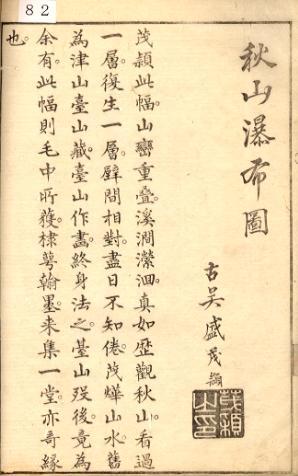 82
秋山瀑布圖
古吳盛茂頴
茂頴此幅。山巒重疊。溪澗瀠洄。真如歷觀秋山。看過
一層。復生一層。壁間相對。盡日不知倦。茂燁山水。舊
為津山臺山藏。臺山作畫。終身法之。臺山歿後。竟為
余有。此幅則毛中所獲。棣萼翰墨。来集一堂。亦奇緣
也。